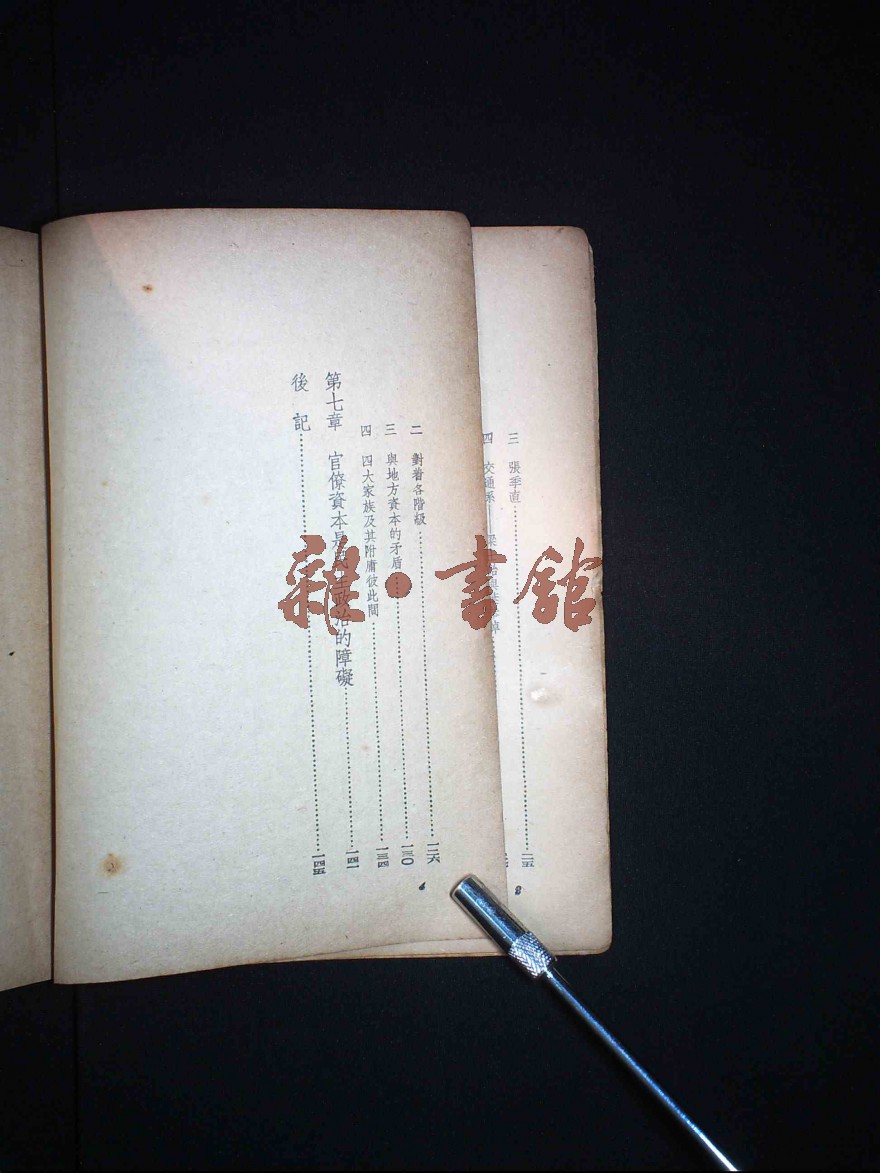 三 張季直……二五
四 交通系——梁
二 對着各階級……一二六
三 與地方資本的矛盾……一三〇
四 四大家族及其附庸彼此間……一三四
第七章 官僚資本是民主政治的障礙……一四一
後記……一四五
4
雜·書館